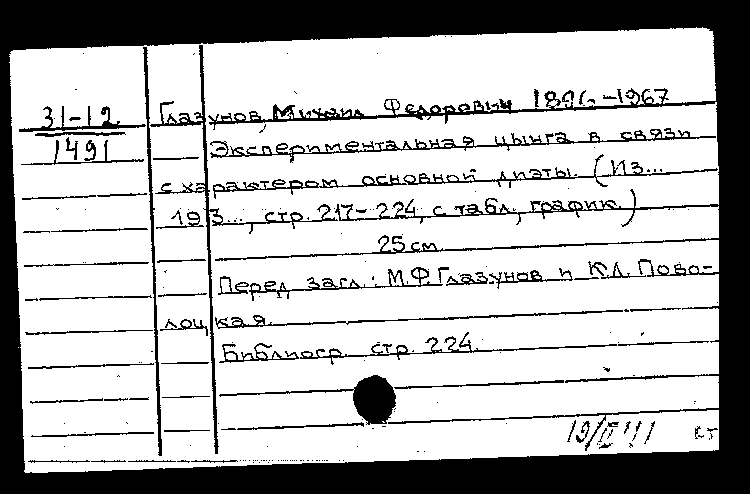 31-12
1491
Глазунов, Михаил Федорович 1896-1967
Экспериментальная цынга в связи
с характером основной диэты. (Из...
193..., стр. 217-224, с табл., график.)
25 см.
Перед загл.: М.Ф. Глазунов и К.Л. Пово-
лоцкая.
Библиогр. стр. 224.